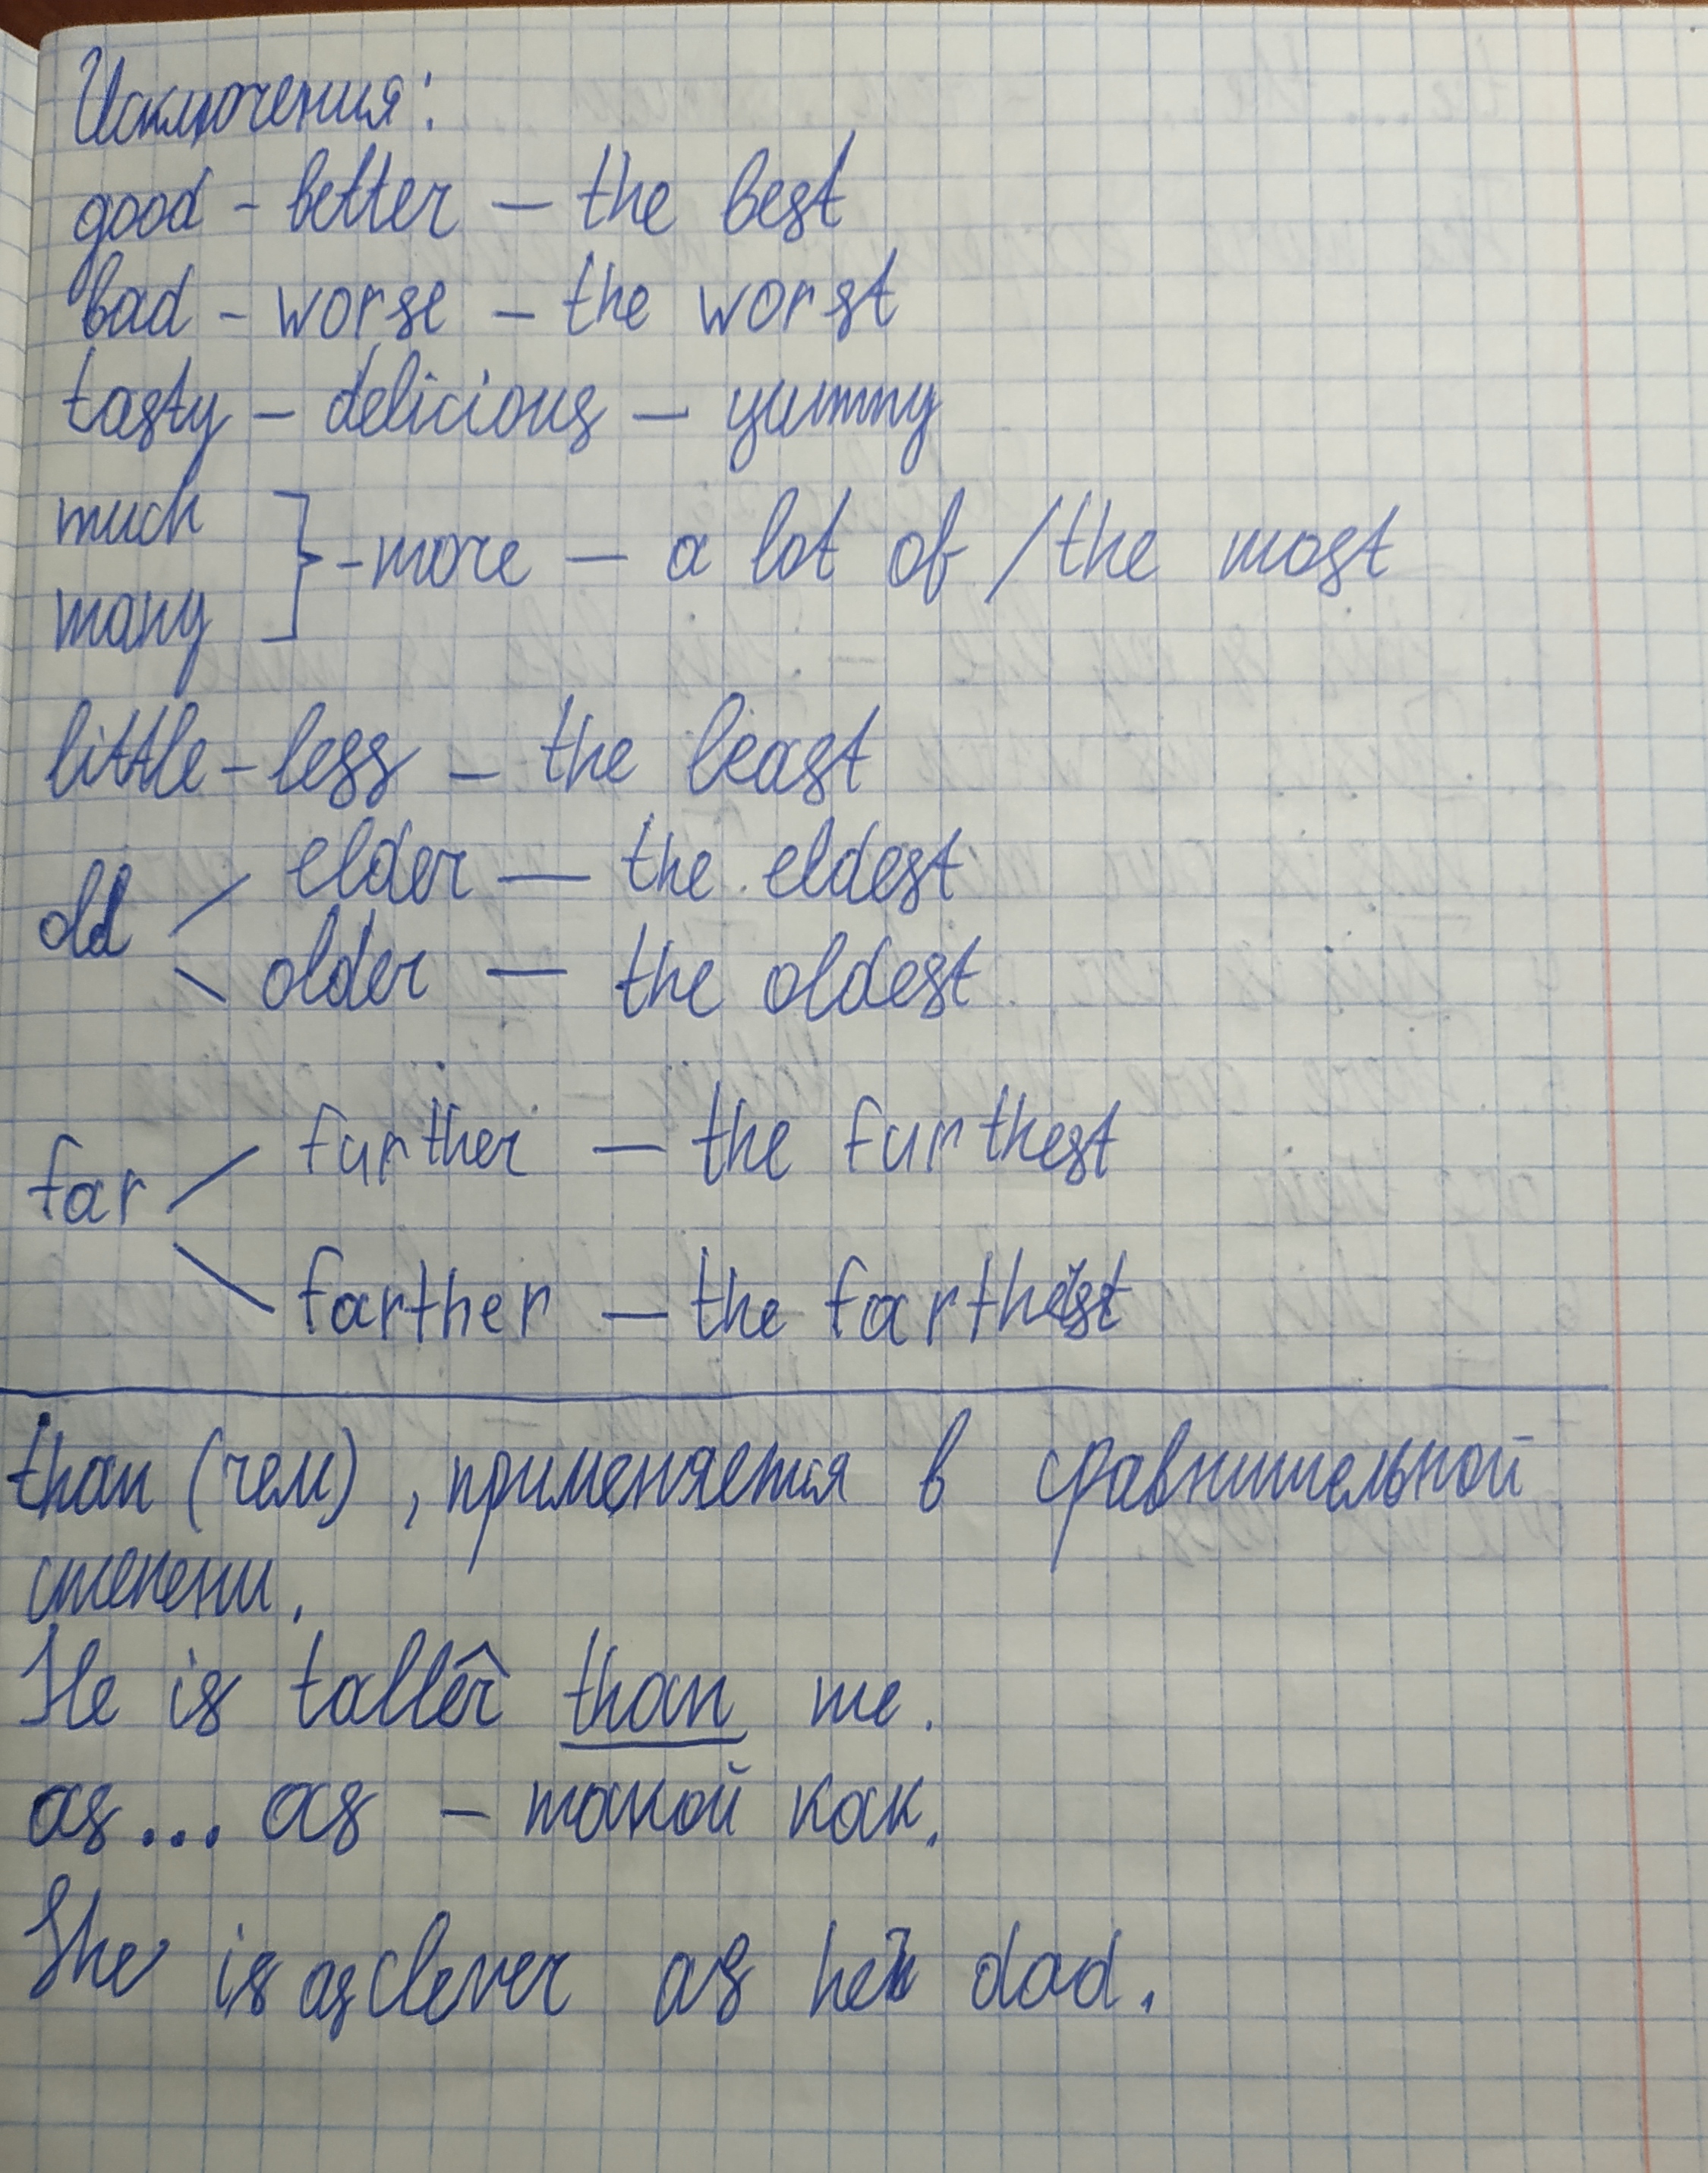 Исключения:
good - better — the best
bad - worse — the worst
tasty — delicious — yummy
much
many
} - more — a lot of / the most
little - less — the least
old
elder — the eldest
older — the oldest
far
further — the furthest
farther — the farthest
than (чем), применяется в сравнительной
степени.
He is taller than me.
as... as — такой как.
She is as clever as her dad.